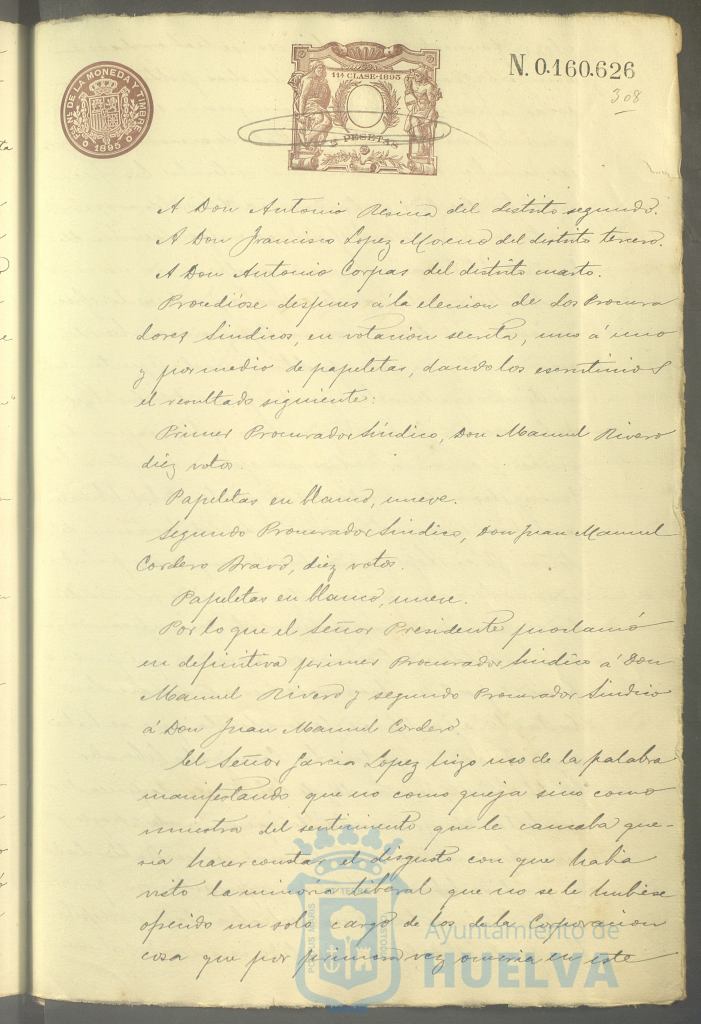 FCA. NAL. DE LA MONEDA Y TIMBRE
1895
11ª CLASE-1895
PESETAS
N. 0.160.626
308
A Don Antonio Resina del distrito segundo.
A Don Francisco Lopez Moreno del distrito tercero.
A Don Antonio Corpas del distrito cuarto.
Procedióse despues á la eleccion de dos Procura
dores Sindicos, en votacion secreta, uno á uno
y por medio de papeletas, dando los escrutinios
el resultado siguiente:
Primer Procurador Síndico, Don Manuel Rivero
diez votos.
Papeletas en blanco, nueve.
Segundo Procurador Sindico, Don Juan Manuel
Cordero Bravo, diez votos.
Papeletas en blanco, nueve.
Por lo que el Señor Presidente proclamó
en definitiva primer Procurador Sindico á Don
Manuel Rivero y segundo Procurador Sindico
á Don Juan Manuel Cordero.
El Señor Garcia Lopez hizo uso de la palabra
manifestando que no como queja sino como
muestra del sentimiento que le causaba que-
ria hacer constar el disgusto con que habia
visto la minoria liberal que no se le hubiese
ofrecido un solo cargo de los de la Corporacion
cosa que por primera vez ocurria en este
Ayuntamiento de
HUELVA